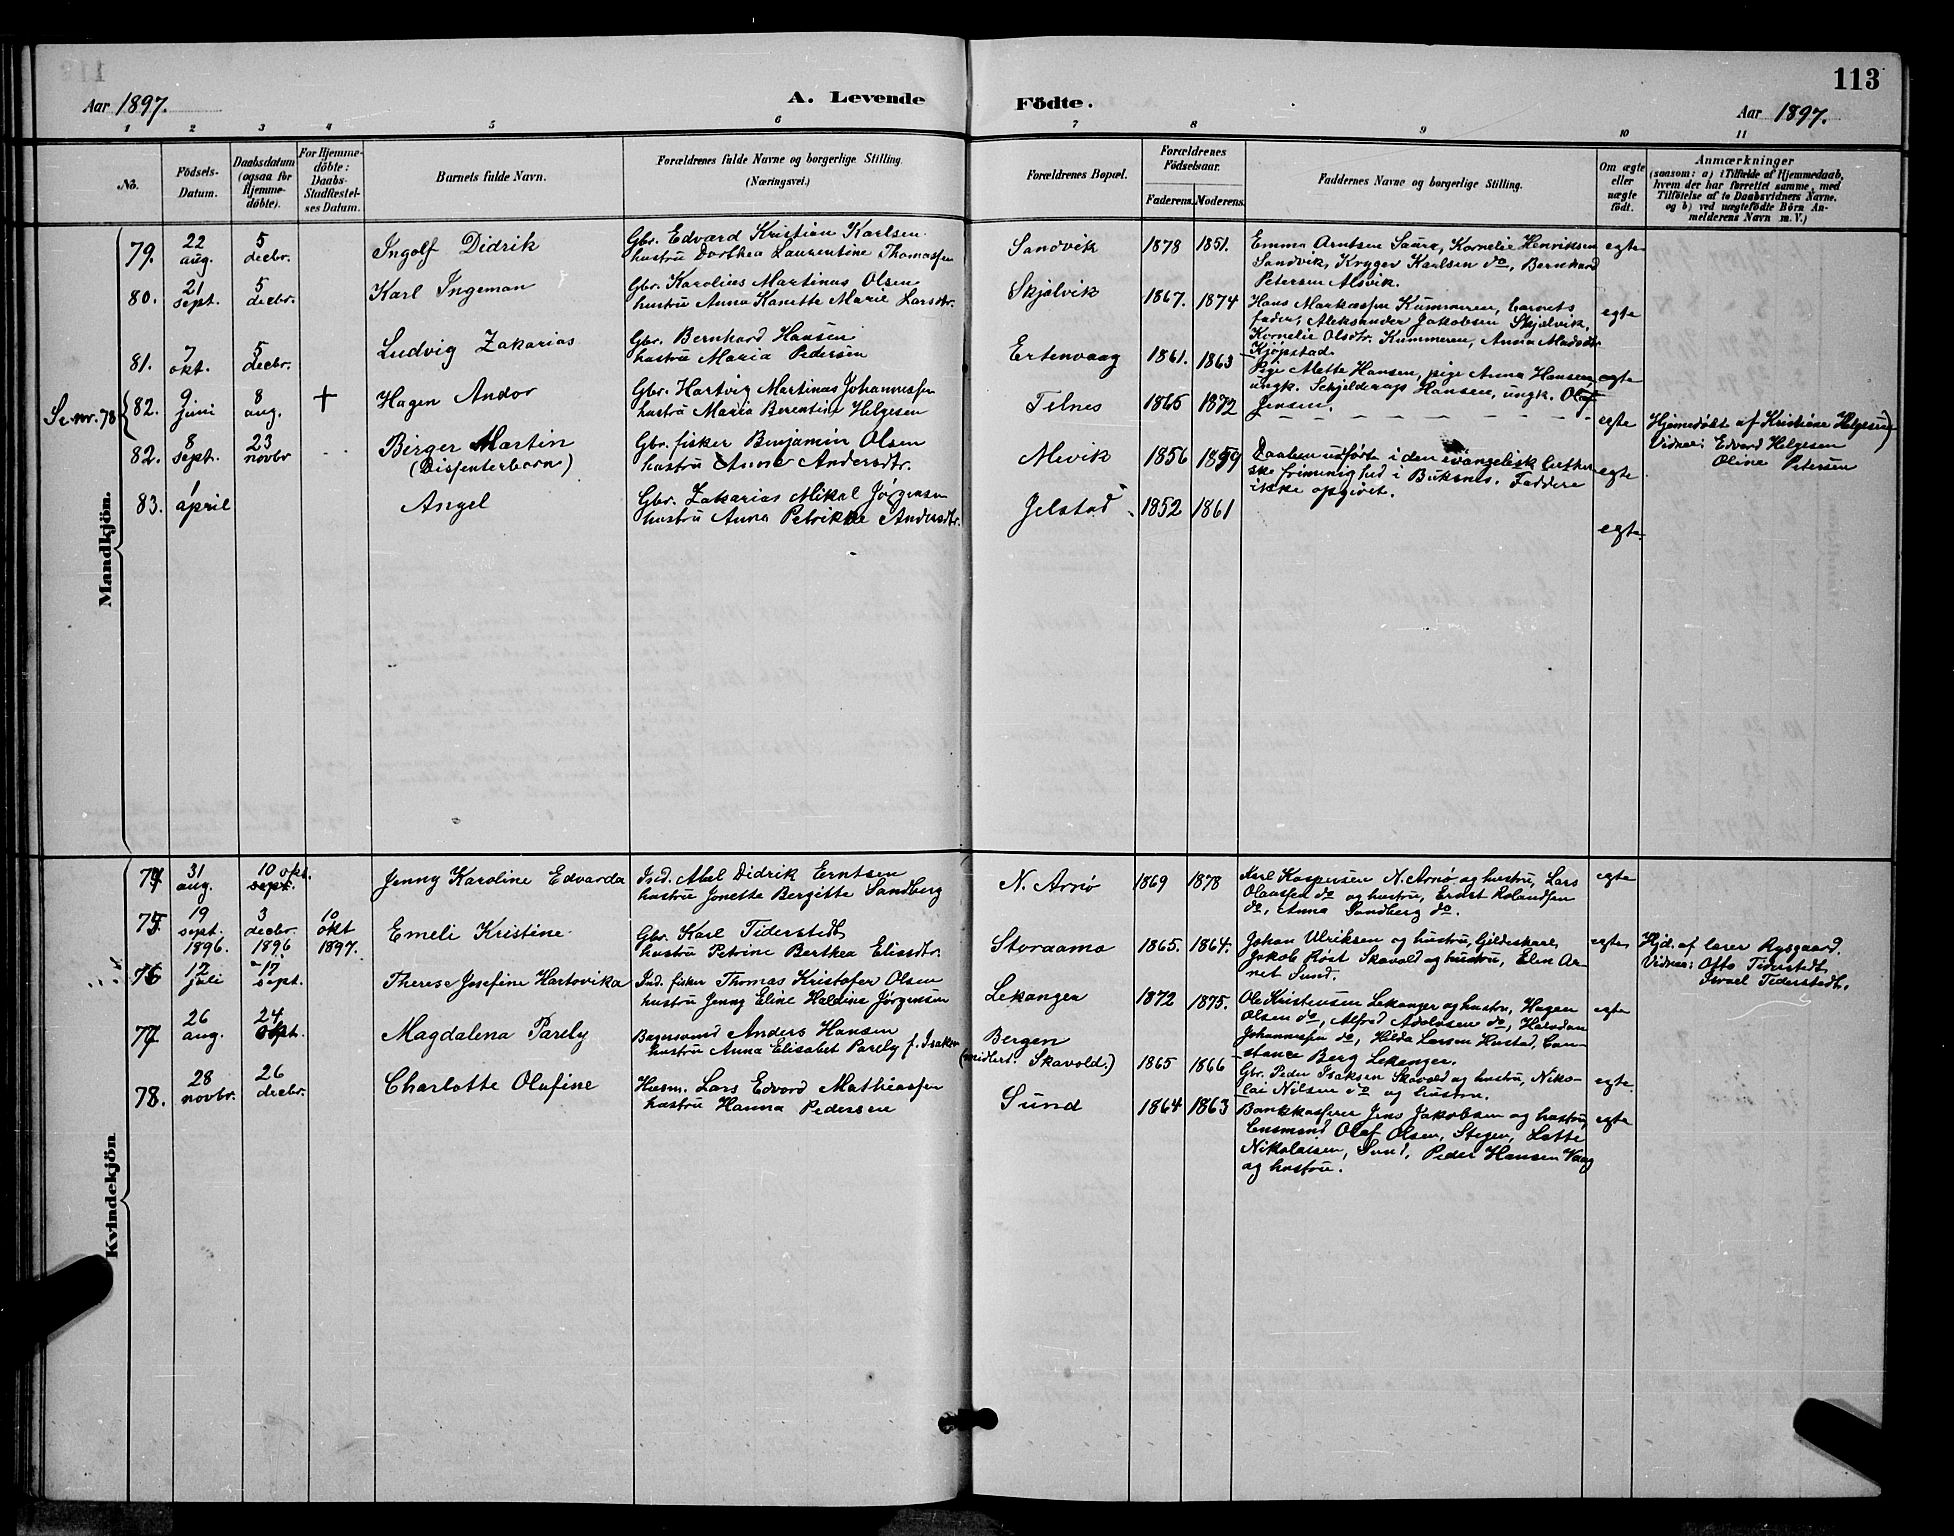 113
Aar 1897. A. Levende Födte. Aar 1897.
1 2 3 4 5 6 7 8 9 10 11
No.
Födsels-
Datum.
Daabsdatum
(ogsaa for
Hjemme-
döbte).
For Hjemme-
döbte:
Daabs-
Stadfæstel-
ses Datum.
Barnets fulde Navn.
Forældrenes fulde Navne og borgerlige Stilling.
(Næringsvei.)
Forældrenes Bopæl.
Forældrenes
Födselsaar.
Faderens. Moderens.
Faddernes Navne og borgerlige Stilling.
Om ægte
eller
uægte
født.
Anmærkninger
(saasom: a) i Tilfælde af Hjemmedaab,
hvem der har forrettet samme, med
Tilföielse af to Daabsvidners Navne.
og b) ved uægtefödte Börn An-
melderens Navn m. V.)
Mandkjön.
79. 22 aug. 5 decbr. Ingolf Didrik
Gbr. Edvard Kristian Karlsen
hustru Dorthea Laurentine Thomassen
Sandvik 1878 1851.
Emma Arntsen Saura, Kornelie Henriksen
Sandvik, Kryger Karlsen do, Bernhard
Petersen Alsvik.
egte
80. 21 sept. 5 decbr. Karl Ingeman
Gbr. Karolius Martinus Olsen
hustru Anna Kanutte Marie Larsdtr.
Skjelvik 1867. 1874
Hans Markussen Kummeren, barnets
fader, Aleksander Jakobsen Skjelvik,
Kornelie Olsdtr. Kummeren, Anna Madsdtr.
Kjøpstad.
egte
81. 7 okt. 5 decbr. Ludvig Zakarias
Gbr. Bernhard Hansen
hustru Maria Pedersen
Ertenvaag 1861. 1863
Pige Mette Hansen, pige Anna Hansen,
ungk. Schjelderup Hansen, ungk. Oluf
Jensen.
egte
Se nr. 78 82. 9 juni 8 aug. + Hagen Andor
Gbr. Hartvig Martinus Johannessen
hustru Maria Berentine Helgesen
Felnes 1865 1872
egte
Hjemedøbt af Kristine Helgesen
Vidner: Edvard Helgesen
Oline Petersen
82. 8 sept. 23 novbr Birger Martin
(Disenterbarn)
Gbr. fisker Benjamin Olsen
hustru Anne Andersdtr.
Mevik 1856 1859
Daaben udført i den evangelisk luther
ske frimenighed i Buksnes. Faddere
ikke opgivet.
egte
83. 1 april Angel
Gbr. Zakarias Mikal Jörgensen
hustru Anna Petrikke Andersdtr.
Jelstad 1852 1861
egte.
Kvindekjön.
74 31 aug. 10 okt. sept. Jenny Karoline Edvarda
Ind. Abel Didrik Erntsen
hustru Jonette Bergitte Sandberg
N. Arnø 1869 1878
Karl Kaspersen N. Arnø og hustru, Lars
Olaussen do og hustru, Ernst Rolandsen
do, Anna Sandberg do.
egte
75. 19 sept. 1896. 3 decbr. 1896 10 okt 1897. Emeli Kristine
Gbr. Karl Tiderstedt
hustru Petrine Berthea Elisedtr.
Storaamo 1865. 1864.
Johan Ulriksen og hustru, Gildeskaal
Jakob Røst Skavold og hustru, Elen Ar-
net Sund.
egte
Hjd. af lærer Rysgaard.
Vidner: Otto Tiderstedt
Israel Tiderstedt.
76 17 juli 17 sept. Therese Josefine Hartovika
Ind. fisker Thomas Kristofer Olsen
hustru Jenny Eline Haldine Jørgensen
Lekanger 1872 1875.
Ole Kristensen Lekanger og hustru, Hagen
Olsen do, Alfred Adolvsen do,
Johannessen do, Hilda Larsen Hustad, Con-
stance Berg Lekanger.
egte
77 26 aug. 24 okt. Magdalena Parely
Anders Hansen
hustru Anna Elisabet Parely f. Isaksen
Bergen
(midlert. Skavold.) 1865 1866
Gbr. Peder Isaksen Skavold og hustru, Niko-
lai Nilsen do og hustru.
egte.
78. 28 novbr. 26 decbr. Charlotte Olufine
Husm. Lars Edvard Mathiassen
hustru Hanna Pedersen
Sund 1864 1863
Bankkasserer Jens Jakobsen og hustru,
Lensmand Olaf Olsen, Stegen, Lotte
Nikolaisen, Sund, Peder Hansen Vaag
og hustru.
egte